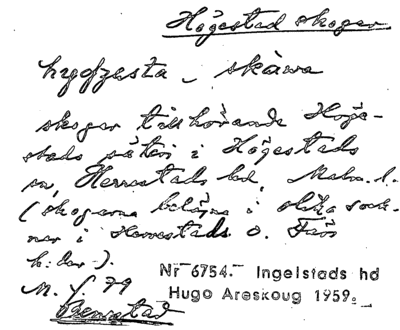 Högestad skogar
skåwa
skogar tillhörande Höge-
stads säteri i Högestads
sn, Herrestads hd, Malm. l.
(skogarna belägna i olika sock-
nar i Herrestads o. Färs
h:der).
Nr 6754. Ingelstads hd
M. J. 79
Hugo Areskoug 1959.